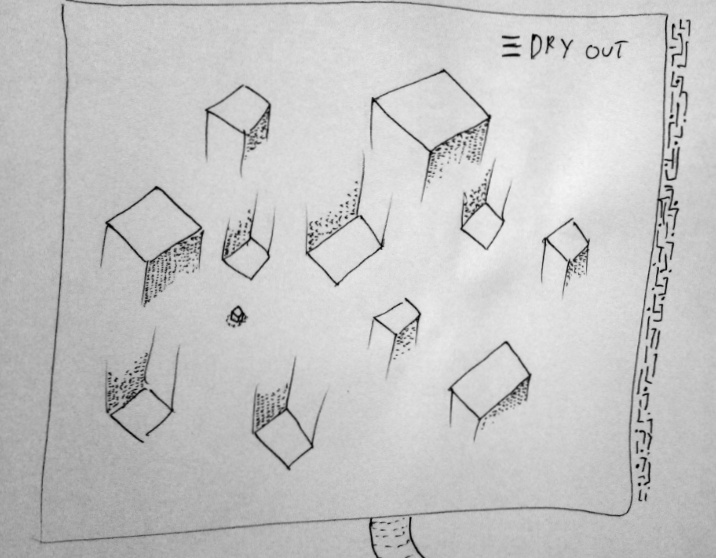 ≡ DRY OUT